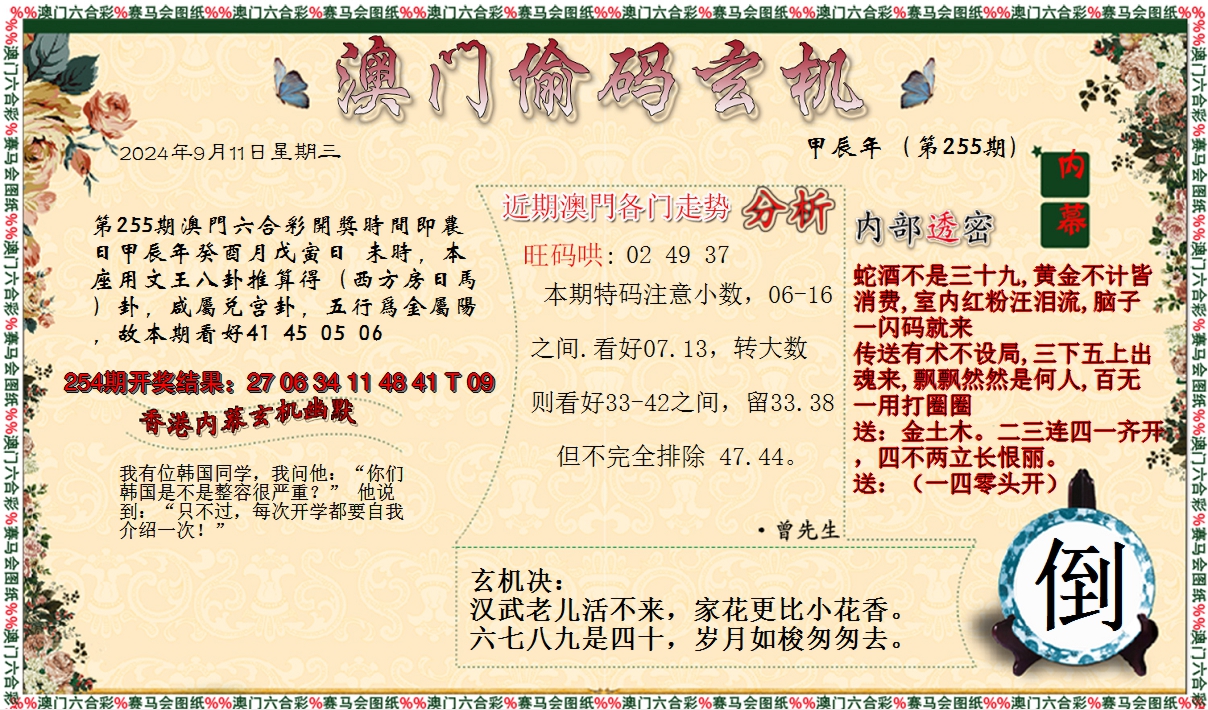 %%澳门六合彩%赛马会图纸%%澳门六合彩%赛马会图纸%%澳门六合彩%赛马会图纸%%澳门六合彩%赛马会图纸%%澳门六合彩%赛马会图纸%%澳门六合彩%赛马会图纸%%
澳门偷码玄机
2024年9月11日星期三
甲辰年（第255期）
内幕
第255期澳門六合彩開獎時間即農
日甲辰年癸酉月戊寅日 未時，本
座用文王八卦推算得（西方房日馬
）卦，咸屬兑宫卦，五行爲金屬陽
，故本期看好41 45 05 06
254期开奖结果：27 06 34 11 48 41 T 09
香港内幕玄机幽默
我有位韩国同学，我问他：“你们
韩国是不是整容很严重？” 他说
到：“只不过，每次开学都要自我
介绍一次！”
近期澳門各门走势 分析
旺码哄: 02 49 37
本期特码注意小数，06-16
之间.看好07.13，转大数
则看好33-42之间，留33.38
但不完全排除 47.44。
·曾先生
内部透密
蛇酒不是三十九,黄金不计皆
消费,室内红粉汪泪流,脑子
一闪码就来
传送有术不设局,三下五上出
魂来,飘飘然然是何人,百无
一用打圈圈
送：金土木。二三连四一齐开
，四不两立长恨丽。
送：（一四零头开）
玄机决：
汉武老儿活不来，家花更比小花香。
六七八九是四十，岁月如梭匆匆去。
倒
%%澳门六合彩%赛马会图纸%%澳门六合彩%赛马会图纸%%澳门六合彩%赛马会图纸%%澳门六合彩%赛马会图纸%%澳门六合彩%赛马会图纸%%澳门六合彩%赛马会图纸%%